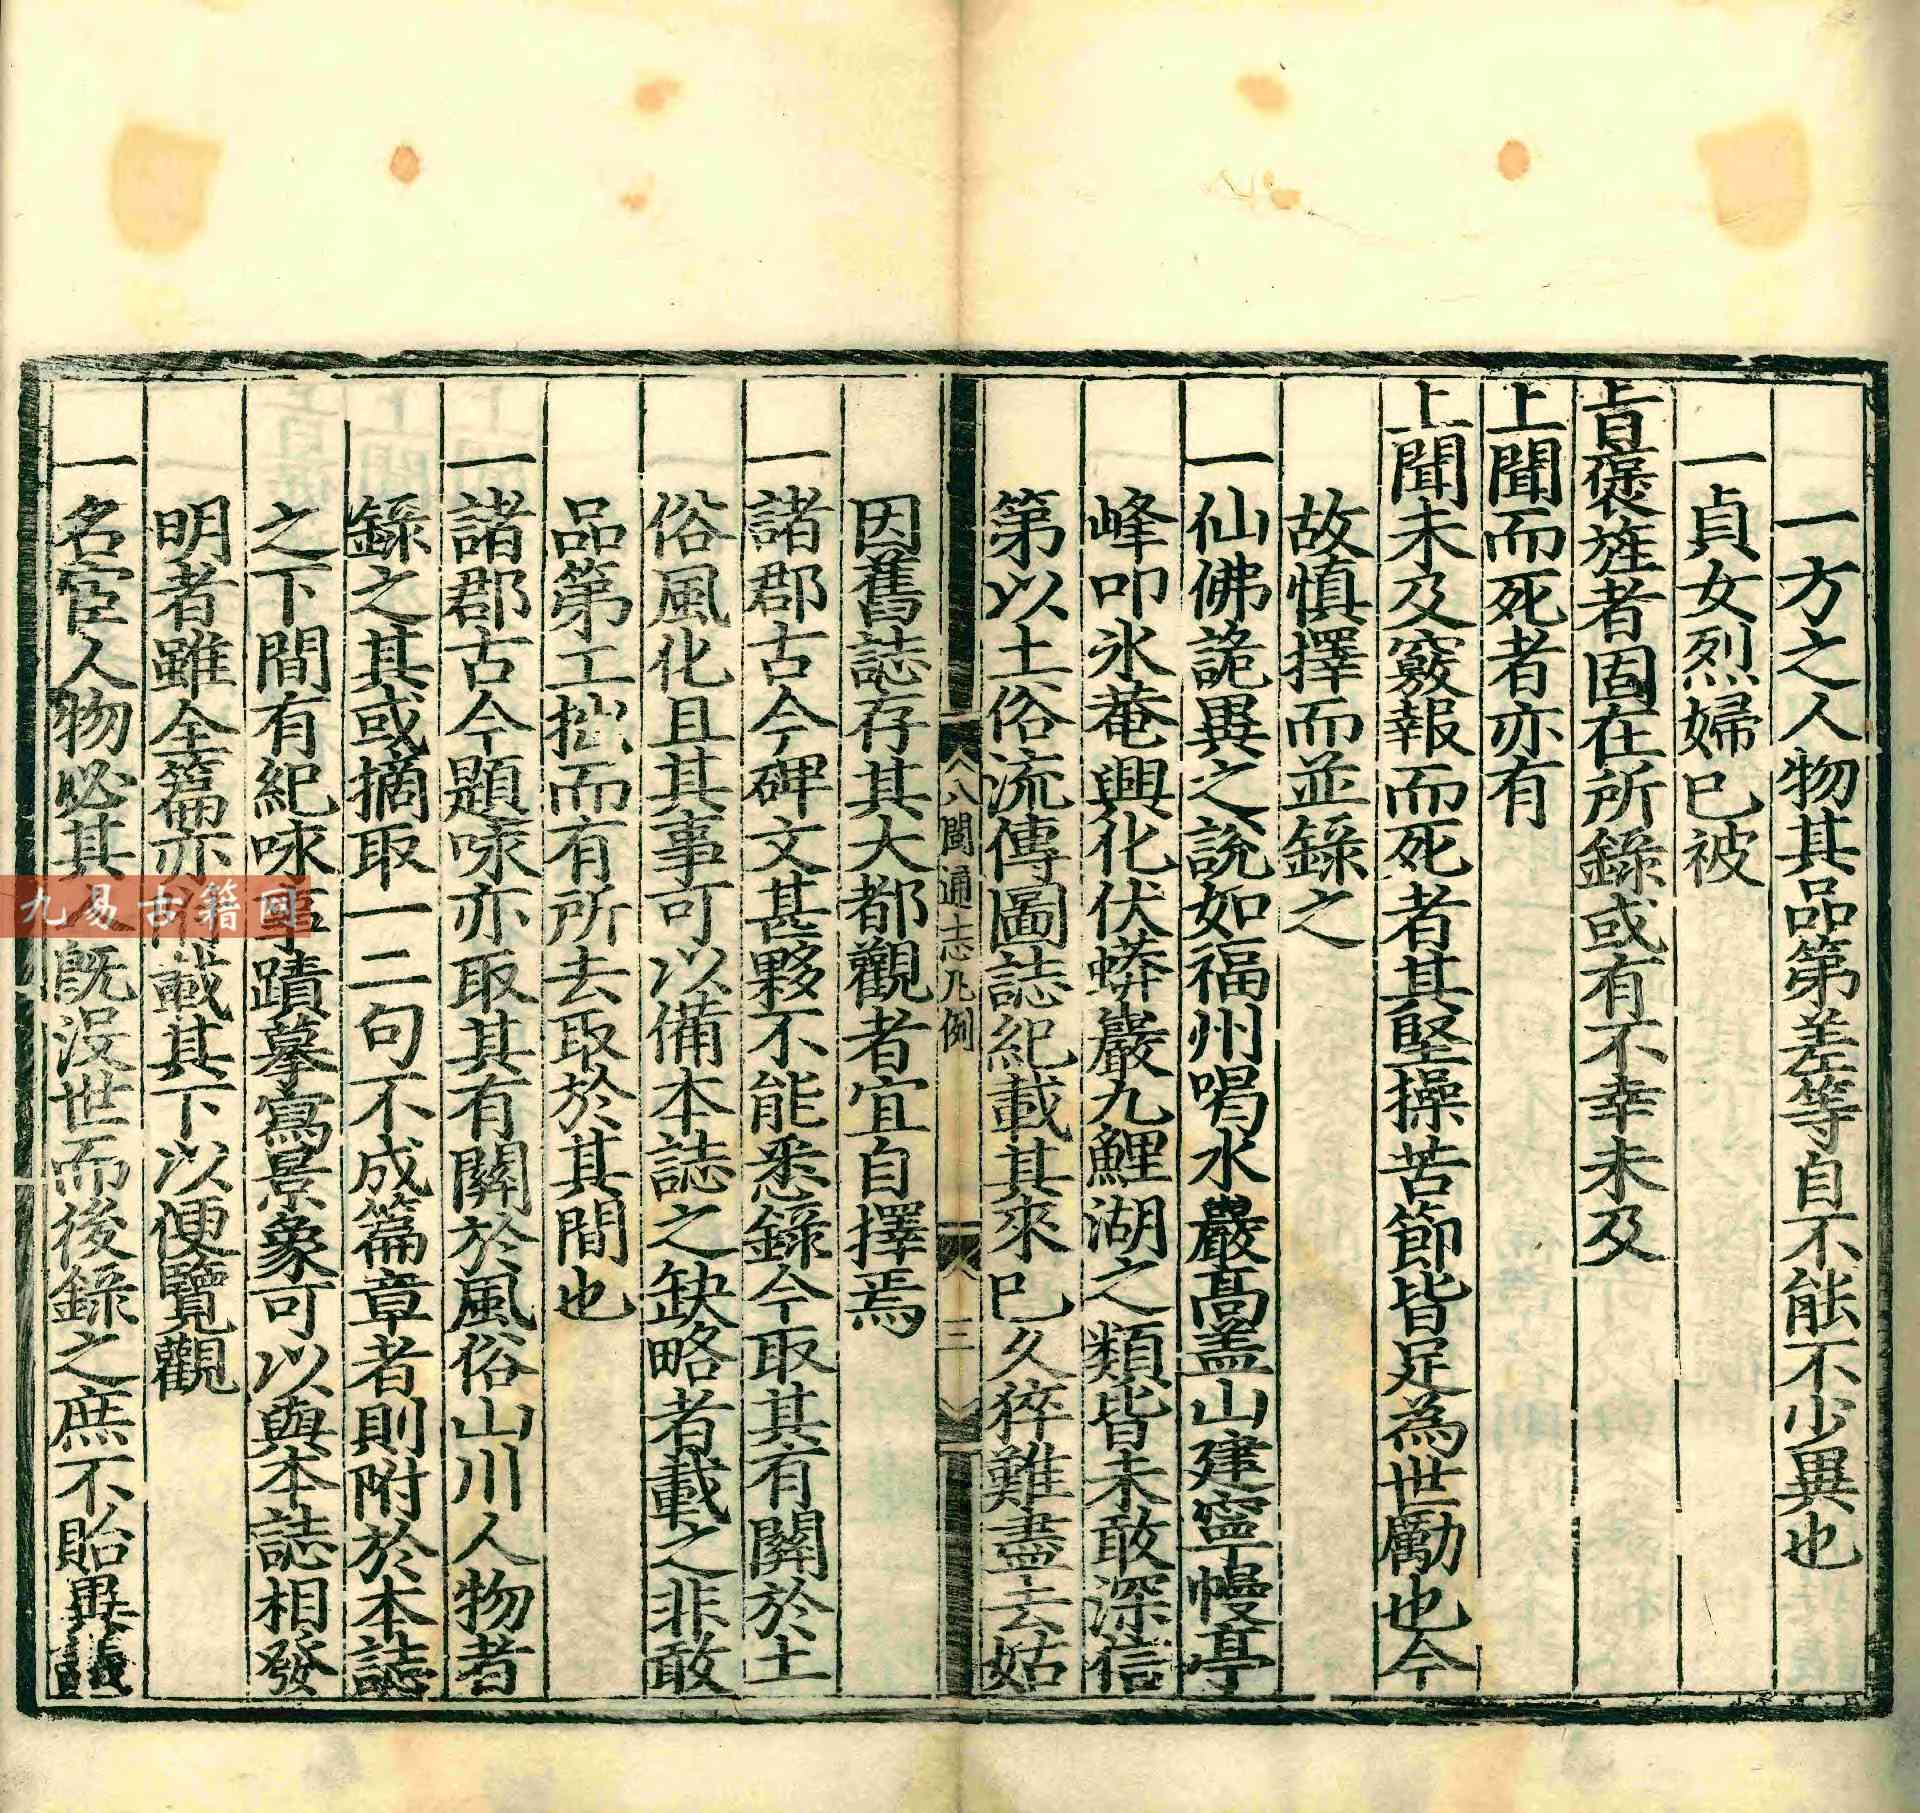 一方之人物其品第差等自不能不少異也
一貞女烈婦已被
旨褒旌者固在所錄或有不幸未及
上聞而死者亦有
上聞未及覈報而死者其堅操苦節皆足為世勵也今
故慎擇而並錄之
一仙佛詭異之說如福州喝水巖高盖山建寧幔亭
峰叩氷菴興化伏蟒巖九鯉湖之類皆未敢深信
第以土俗流傳圖誌紀載其來已久猝難盡去姑
八閩通志凡例
三
因舊誌存其大都觀者宜自擇焉
一諸郡古今碑文甚夥不能悉錄今取其有關於土
俗風化且其事可以備本誌之缺略者載之非敢
品第工拙而有所去取於其間也
一諸郡古今題咏亦取其有關於風俗山川人物者
錄之其或摘取一二句不成篇章者則附於本誌
之下間有紀咏事蹟摹寫景象可以與本誌相發
明者雖全篇亦附載其下以便覽觀
一名宦人物必其人既没世而後錄之庶不貽異議
九易古籍网